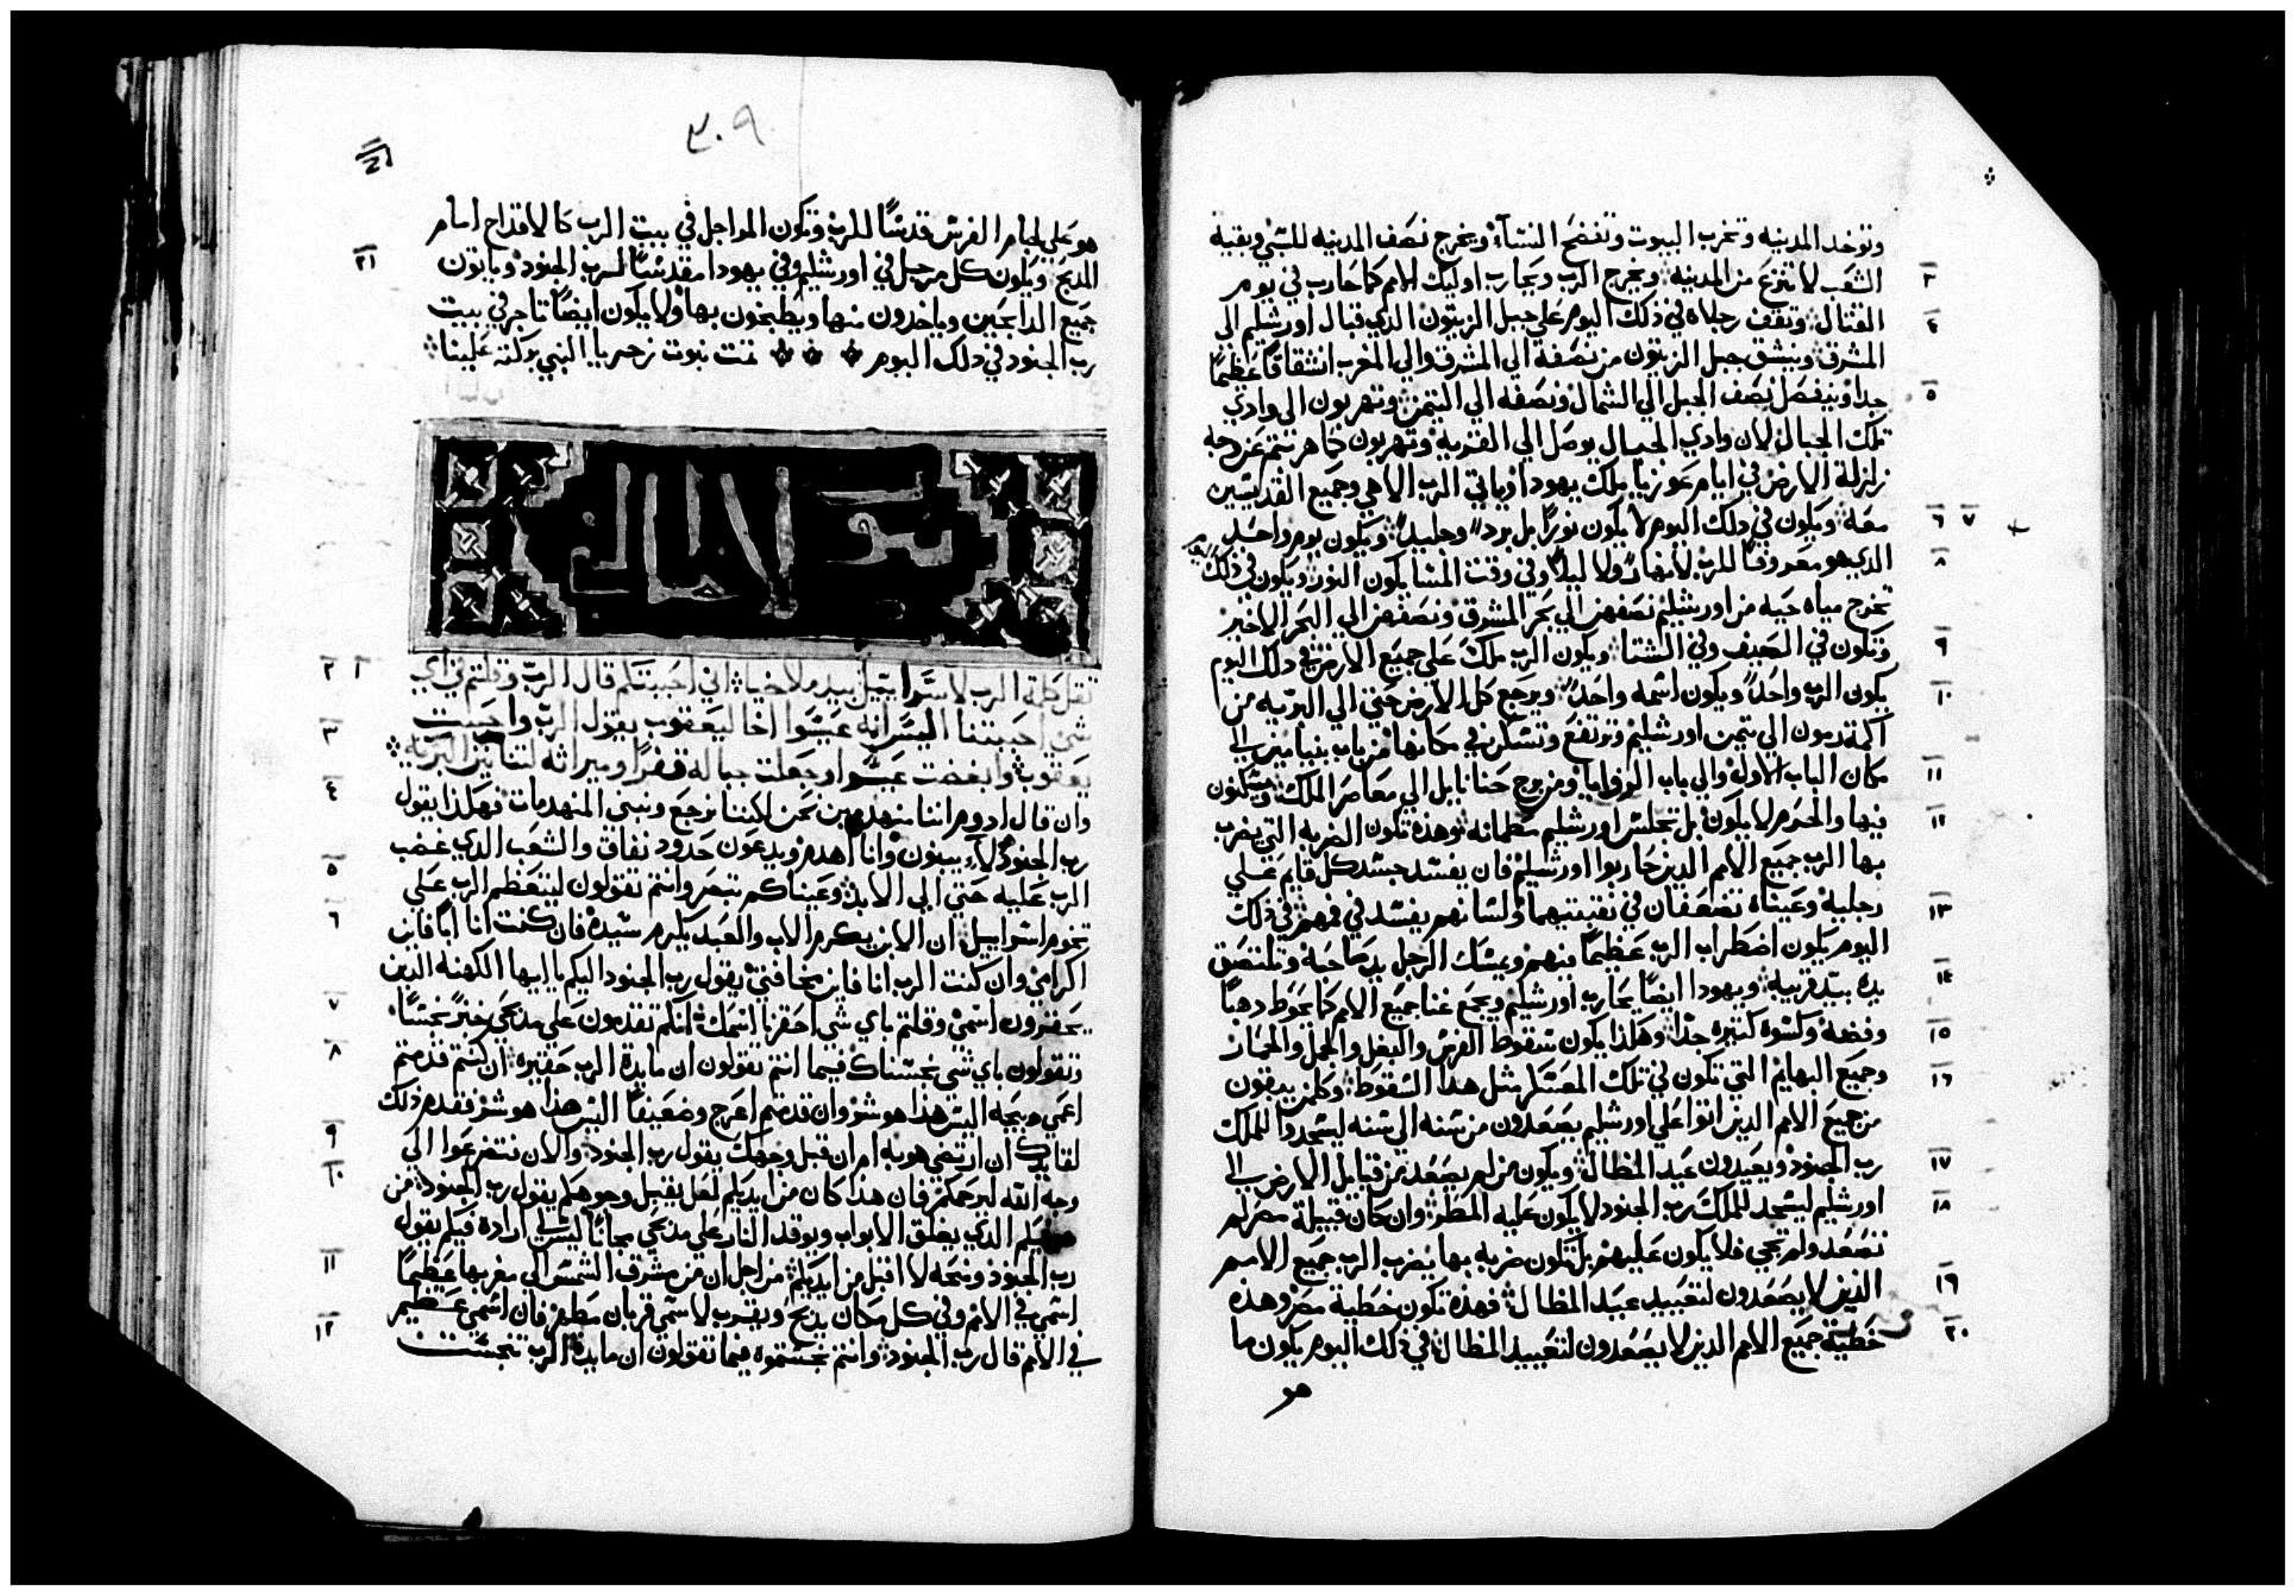 وتوخد المدينه وتخرب البيوت وتفضح النسآء ويخرج نصف المدينه للسبي وبقية
٣ الشعب لا ينتزع من المدينه ويخرج الرب ويحارب اوليك الامم كما حارب في يوم
٤ القتال وتقف رجلاه في ذلك اليوم علي جبل الزيتون الذي قبال اورشليم الي
المشرق وينشق جبل الزيتون من نصفه الي المشرق والي المغرب انشقاقًا عظيمًا
٥ جدا وينفصل نصف الجبل الي الشمال ونصفه الي التيمن وتهربون الي وادي
تلك الجبال لان وادي الجبال يوصل الي القريه وتهربون كما هربتم عن وجه
زلزلة الارض في ايام عوزيا ملك يهودا وياتي الرب الاهي وجميع القديسين
٦ ٧ معه ويكون في ذلك اليوم لا يكون نورًا بل برد وجليد ويكون يوم واحد
٨ الذي هو معروفًا للرب لا نهار ولا ليل وفي وقت المسا يكون النور ويكون في ذلك اليوم
تخرج مياه حيه من اورشليم نصفهن الي بحر المشرق ونصفهن الي البحر الاخير
٩ وتكون في الصيف وفي الشتا ويكون الرب ملك علي جميع الارض في ذلك اليوم
١٠ يكون الرب واحد ويكون اسمه واحد ويرجع كل الارض حتي الي البريه من
اكمة رمون الي تيمن اورشليم وترتفع وتسكن في مكانها من باب بنيامين الي
١١ مكان الباب الاول والي باب الزوايا ومن برج حنانايل الي معاصر الملك ويسكنون
١٢ فيها والحرم لا يكون بل تجلس اورشليم مطمانه وهذه تكون الضربه التي يضرب
بها الرب جميع الامم الذين حاربوا اورشليم فان يفسد جسد كل قايم علي
١٣ رجليه وعيناه تضعفان في نقبتيهما ولسانهم يفسد في فمهم في ذلك
اليوم يكون اضطراب الرب عظيمًا فيهم ويمسك الرجل يد صاحبه وتلتصق
١٤ يده بيد قريبه ويهودا ايضًا يحارب اورشليم ويجمع غنا جميع الامم كما يحوط دهبًا
١٥ وفضه وكسوه كتيره جدًا وهكذا يكون سقوط الفرس والبغل والجمل والحمار
١٦ وجميع البهايم التي تكون في تلك المعسكر مثل هذا السقوط وكلمن يبقون
من جميع الامم الذين اتوا علي اورشليم يصعدون من سنه الي سنه ليسجدوا للملك
١٧ رب الجنود ويعيدون عيد المظال ويكون من لم يصعد من قبايل الارض الي
١٨ اورشليم ليسجد للملك رب الجنود لا يكون عليه المطر وان كان قبيلة مصر لم
تصعد ولم تجي فلا يكون عليهم بل تكون ضربه بها يضرب الرب جميع الامم
١٩ الذين لا يصعدون لتعييد عيد المظال فهذه تكون خطية مصر وهذه
٢٠ خطية جميع الامم الذين لا يصعدون لتعييد المظال في ذلك اليوم يكون ما
هو
٣٠٩
هو علي لجام الفرس قدسًا للرب وتكون المراجل في بيت الرب كالاقداح امام
٢١ المدبح ويكون كل مرجل في اورشليم وفي يهودا مقدسًا لرب الجنود وياتون
جميع الدابحين وياخدون منها ويطبخون بها ولا يكون ايضًا تاجر في بيت
رب الجنود في دلك اليوم تمت نبوت زخريا النبي بركته علينا
١ ٢ ثقل كلمة الرب لاسرايل بيد ملاخيا اني احببتكم قال الرب وقلتم في اي
٣ شي احببتنا اليس انه عيسوا اخا ليعقوب يقول الرب واحببت
يعقوب وابغضت عيسوا وجعلت جباله قفرًا وميراثه لتنانين البريه
٤ وان قال ادوم اننا منهدمين نحن لكننا نرجع ونبني المنهدمات فهكذا يقول
رب الجنود هولآء يبنون وانا اهدم ويدعون حدود نفاق والشعب الدي غضب
٥ الرب عليه حتي الي الابد وعيناكم تبصر وانتم تقولون ليتعظم الرب علي
٦ تخوم اسراييل ان الابن يكرم الاب والعبد يكرم سيده فان كنت انا ابًا فاين
اكرامي وان كنت الرب انا فاين مخافتي يقول رب الجنود اليكم ياايها الكهنه الدين
٧ يحقرون اسمي وقلتم باي شي احقرنا اسمك انكم تقدمون علي مدبحي خبزً نجسًا
٨ وتقولون باي شي نجسناك فيما انتم تقولون ان مايدة الرب حقيره ان كنتم قدمتم
اعمي دبيحه اليس هذا هو شر وان قدمتم اعرج وضعيفًا اليس هذا هو شر فقدم ذلك
٩ لقايدك ان ارتضي هو به ام ان قبل وجهك يقول رب الجنود والان تتضرعوا الي
١٠ وجه الله ليرحمكم فان هذا كان من ايديكم لعل يقبل وجوهكم يقول رب الجنود من
فيكم الذي يغلق الابواب ويوقد النار علي مدبحي مجانًا ليس لي ارادة فيكم يقول
١١ رب الجنود ونتجه لا اقبل من ايديكم من اجل ان من مشرق الشمس الي مغربها عظيمًا
اسمي في الامم وفي كل مكان يدبح ويقرب لاسمي قربان مطهر فان اسمي عظيم
١٢ في الامم قال رب الجنود وانتم نجستموه فيما تقولون ان مايدة الرب تنجست